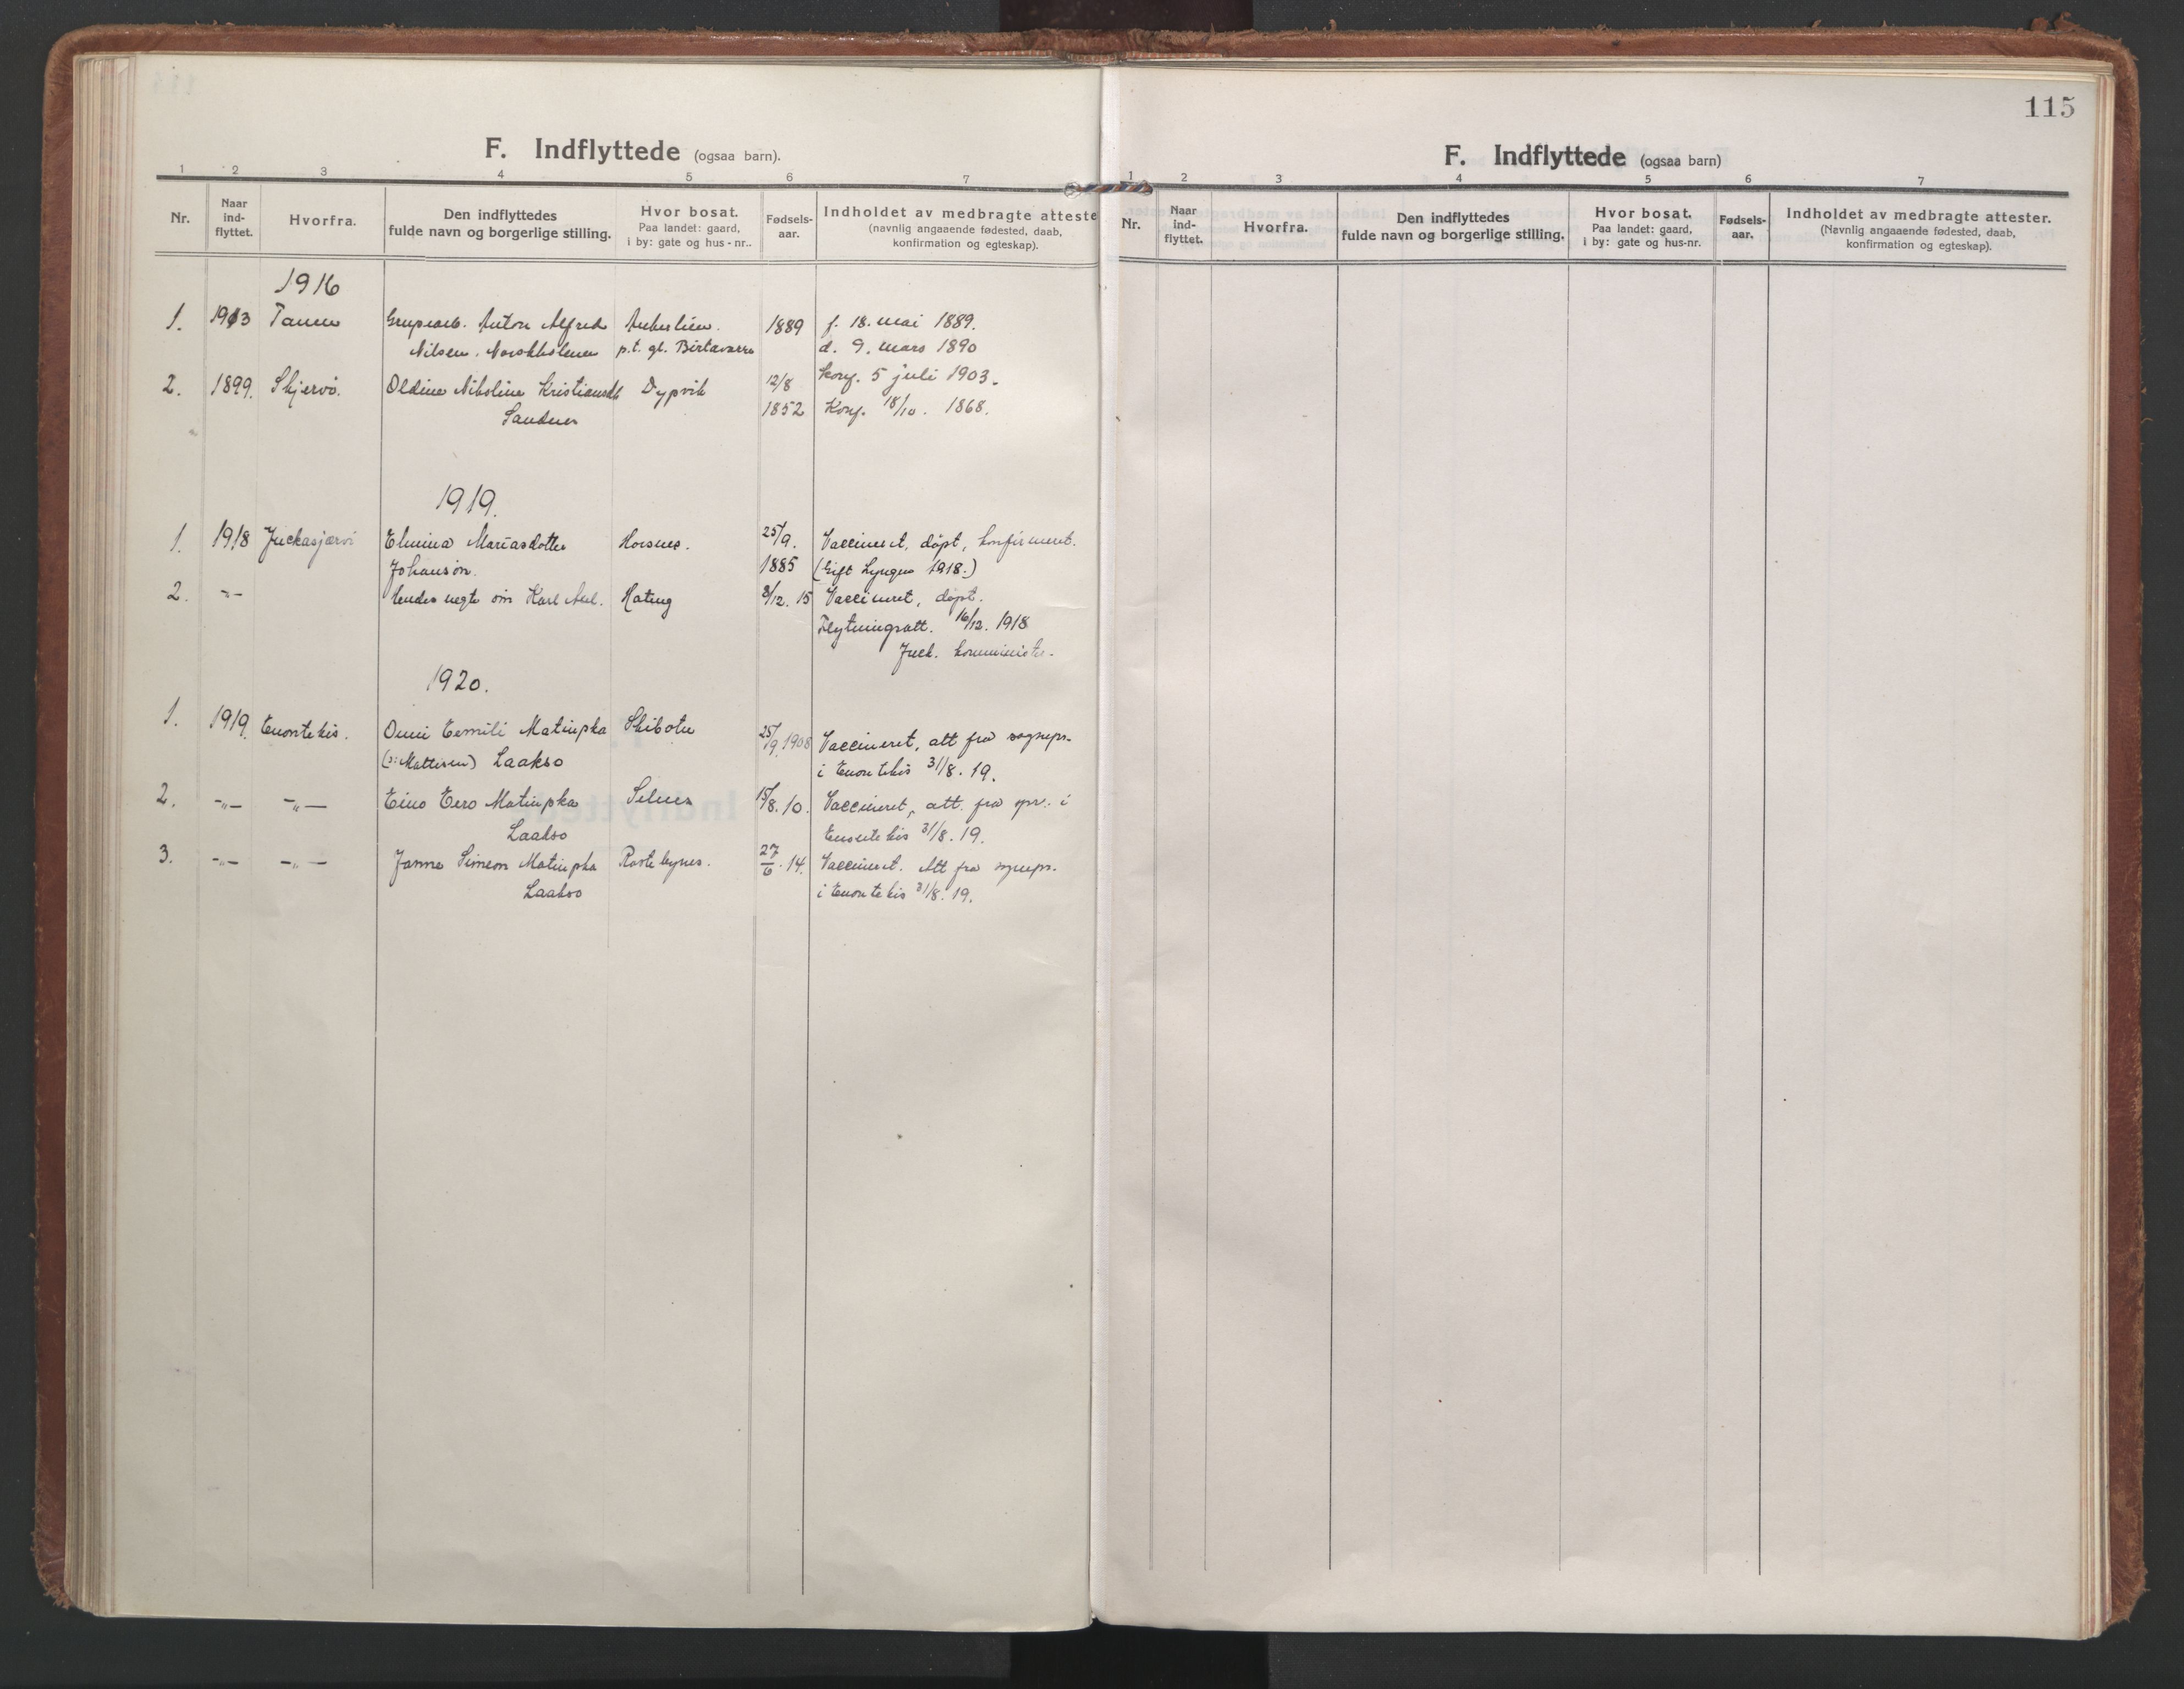 F. Indflyttede (ogsaa barn).
1 2 3 4 5 6 7
Nr. Naar ind-flyttet. Hvorfra. Den indflyttedes fulde navn og borgerlige stilling. Hvor bosat. Paa landet: gaard, i by: gate og hus-nr.. Fødsels-aar. Indholdet av medbragte atteste (navnlig angaaende fødested, daab, konfirmation og egteskap).
1916
1. 1913 Tanen Gruparb. Anton Alfred 1889 f. 18. mai 1889.
Nilsen. p.t. gl. Birtavarre d. 9. mars 1890
konf. 5 juli 1903.
2. 1899. Skjervö. Oldine Nikoline Kristiansdt Dypvik 12/8
Sandnes 1852 Konf. 18/10. 1868.
1919.
1. 1918 Juckasjärvi Elmina Mariasdotter Horsnes. 25/9. Vaccineret, döpt, konfirmeret.
Johanson. 1885 (Gift Lyngen 1918.)
2. -"- Hendes uegte sön Karl Aul. 8/12. 15 Vaccineret, döpt.
Flytningsatt. 16/12. 1918
Juck. komminister.
1920.
1. 1919. Enontekis. Onni Eemili Matinpka Skibotn 25/9 1908 Vaccineret, att fra sognepr.
(ɔ: Mattisen) Laakso i Enontekis 31/8. 19.
2. -"- -"- Eino Eero Matinpka 15/8. 10. Vaccineret, att. fra spr. i
Laakso Enontekis 31/8. 19.
3. -"- -"- Janne Simeon Matinpka 27/6. 14. Vaccineret. Att fra sognepr.
Laakso i Enontekis 31/8. 19.
115
F. Indflyttede (ogsaa barn)
1 2 3 4 5 6 7
Nr. Naar ind-flyttet. Hvorfra. Den indflyttedes fulde navn og borgerlige stilling. Hvor bosat. Paa landet: gaard, i by: gate og hus-nr. Fødsels-aar. Indholdet av medbragte attester. (Navnlig angaaende fødested, daab, konfirmation og egteskap).